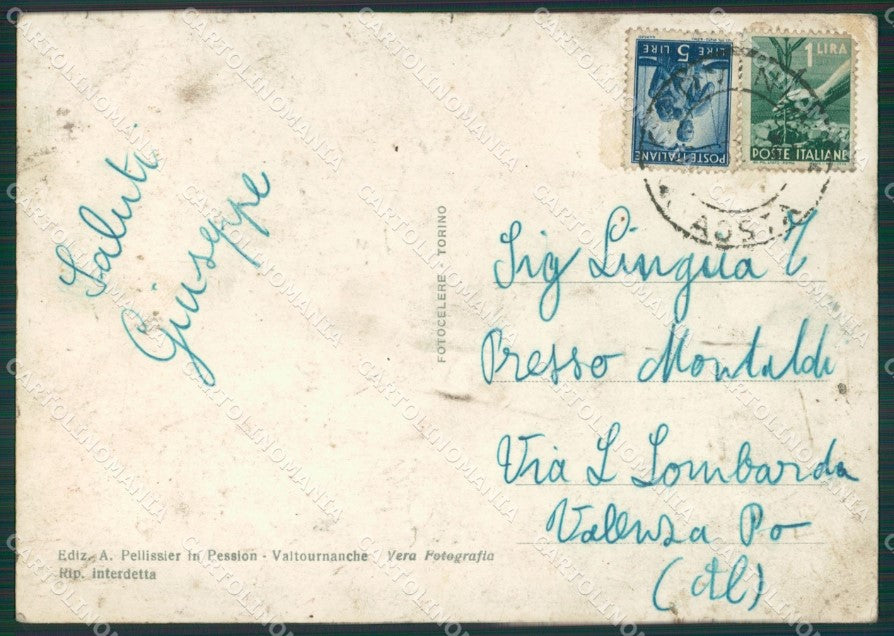 5 LIRE
POSTE ITALIANE
1 LIRA
POSTE ITALIANE
AOSTA
Saluti
Giuseppe
FOTOCELERE TORINO
Sig Lingua
Presso Montaldi
Via L Lombarda
Valenza Po
(Al)
Ediz. A. Pellissier in Pession - Valtournanche Vera Fotografia
Rip. interdetta
CARTOLINOMANIA